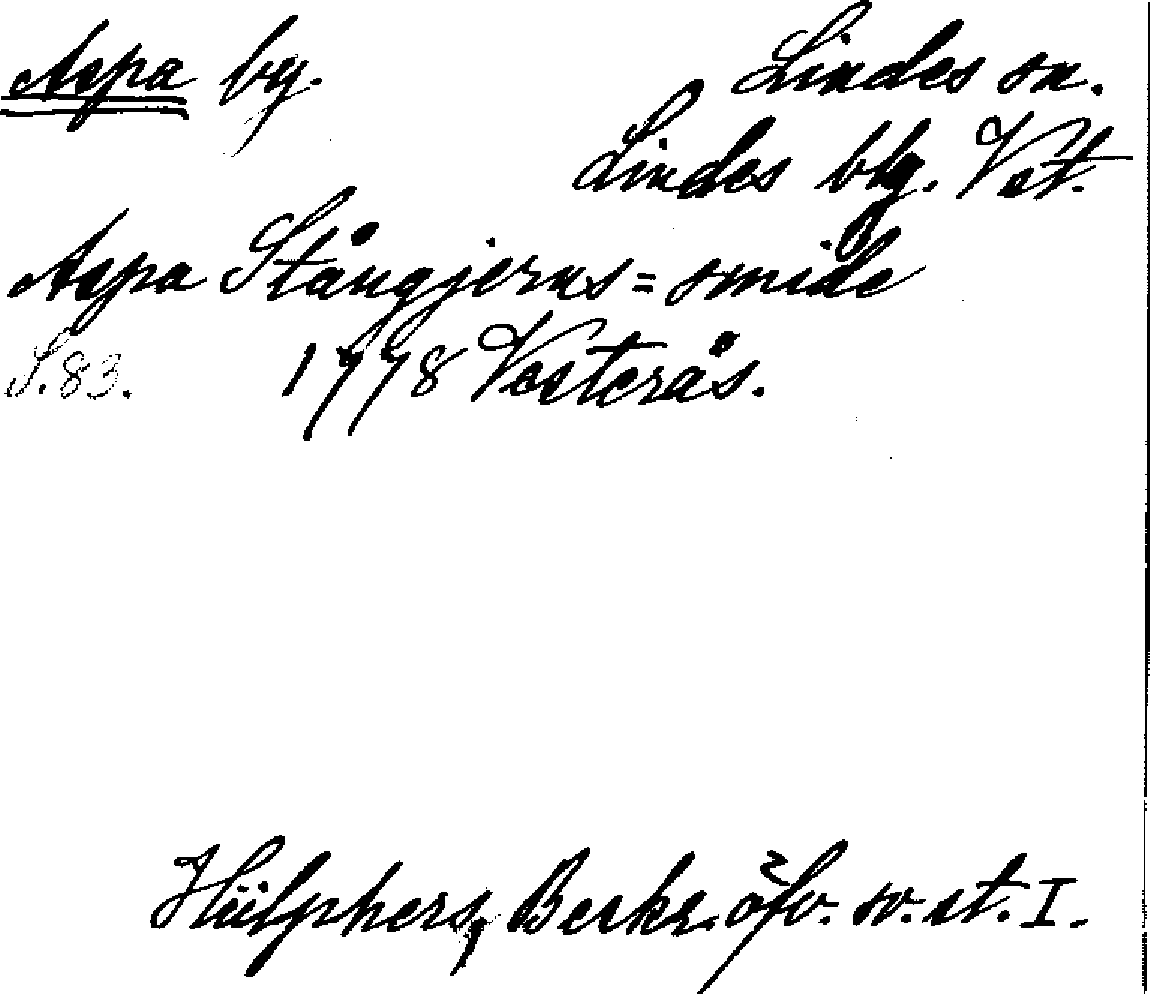 Aspa by. Lindes sn.
Lindes blg. Vst.
Aspa Stångjerns=smide
S. 83. 1778 Vesterås.
Hülphers, Beskr. öfv. sv. st. I.